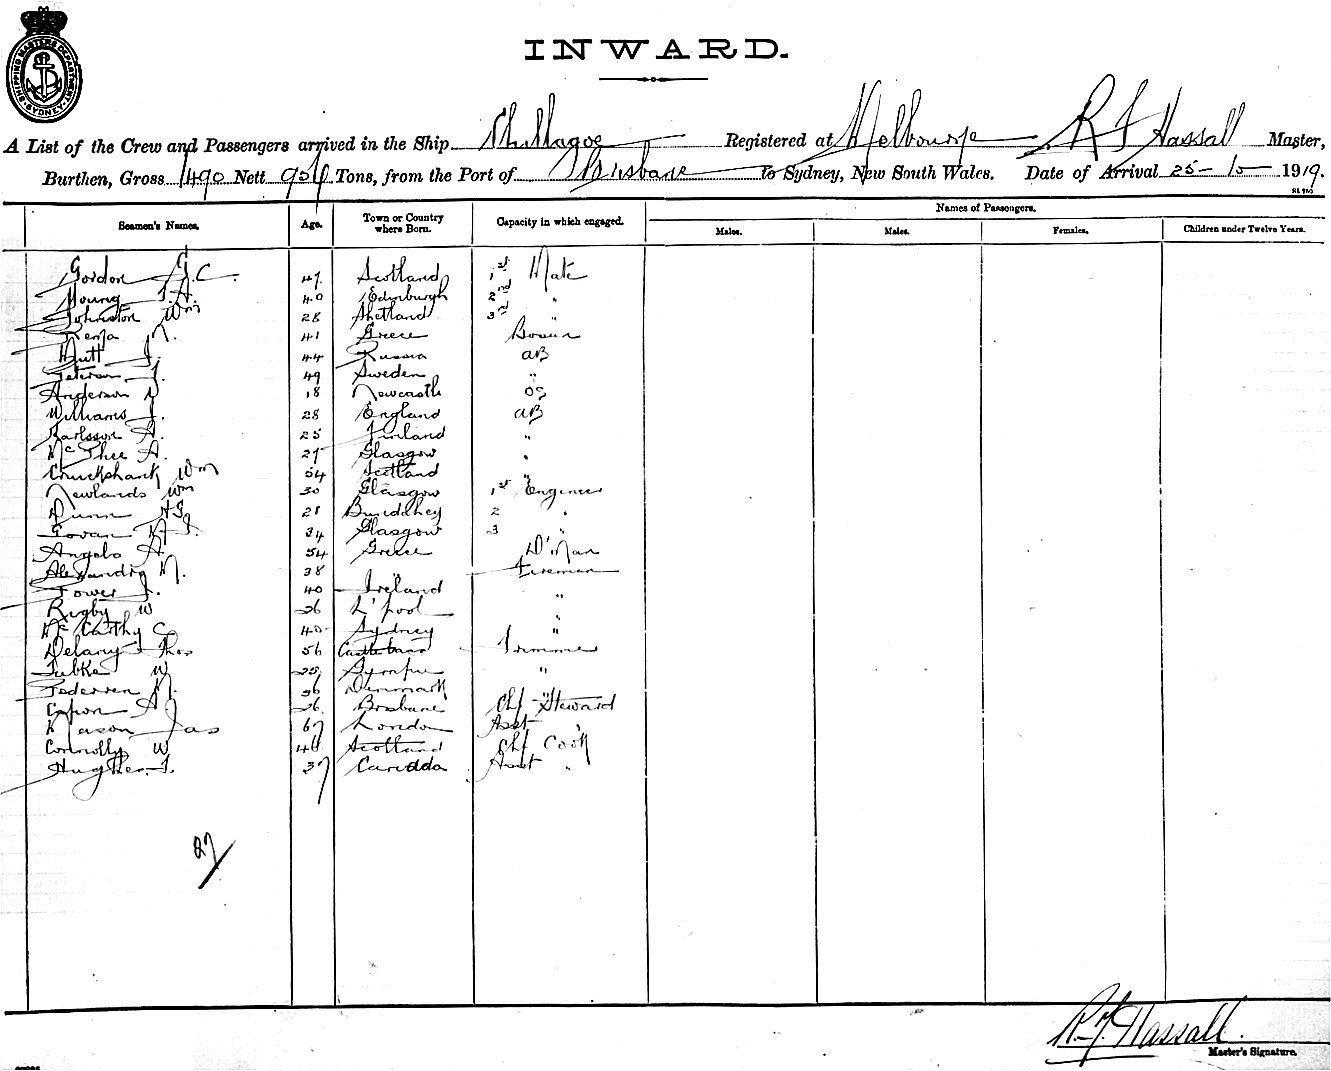 SHIPPING MASTERS DEPARTMENT
SYDNEY
INWARD.
A List of the Crew and Passengers arrived in the Ship Chillagoe Registered at Melbourne R F Hassall Master,
Burthen, Gross 1490 Nett Tons, from the Port of Brisbane to Sydney, New South Wales. Date of Arrival 25- 1919.
Names of Passengers.
Seamen's Names. Age. Town or Country where Born. Capacity in which engaged. Males. Males. Females. Children under Twelve Years.
Gordon J.C. 47 Scotland 1st Mate
Young J.A. 40 Edinburgh 2nd "
Johnston Wm 28 Shetland 3rd "
41 Greece Bosun
44 Russia AB
Peterson J. 49 Sweden "
Anderson 18 Newcastle OS
Williams J. 28 England AB
Karlsson A. 25 Finland "
McPhee A. 27 Glasgow "
Cruickshank Wm 54 Scotland "
Newlands Wm 30 Glasgow 1st Engineer
Dunn 28 2 "
Govan 34 Glasgow 3 "
Angelo A. 54 Greece D'Man
Alexandria 38 Fireman
Power J. 40 Ireland "
Rigby W 26 L'pool "
McCarthy C 40 Sydney "
Delany Thos 56 Trimmer
W "
Pedersen 26 Denmark "
Capon A. 26 Brisbane Chf Steward
Mason Jas 67 London Asst "
Connolly W 46 Scotland Chf Cook
Hughes T. 37 Canada Asst "
27
R.F. Hassall.
Master's Signature.